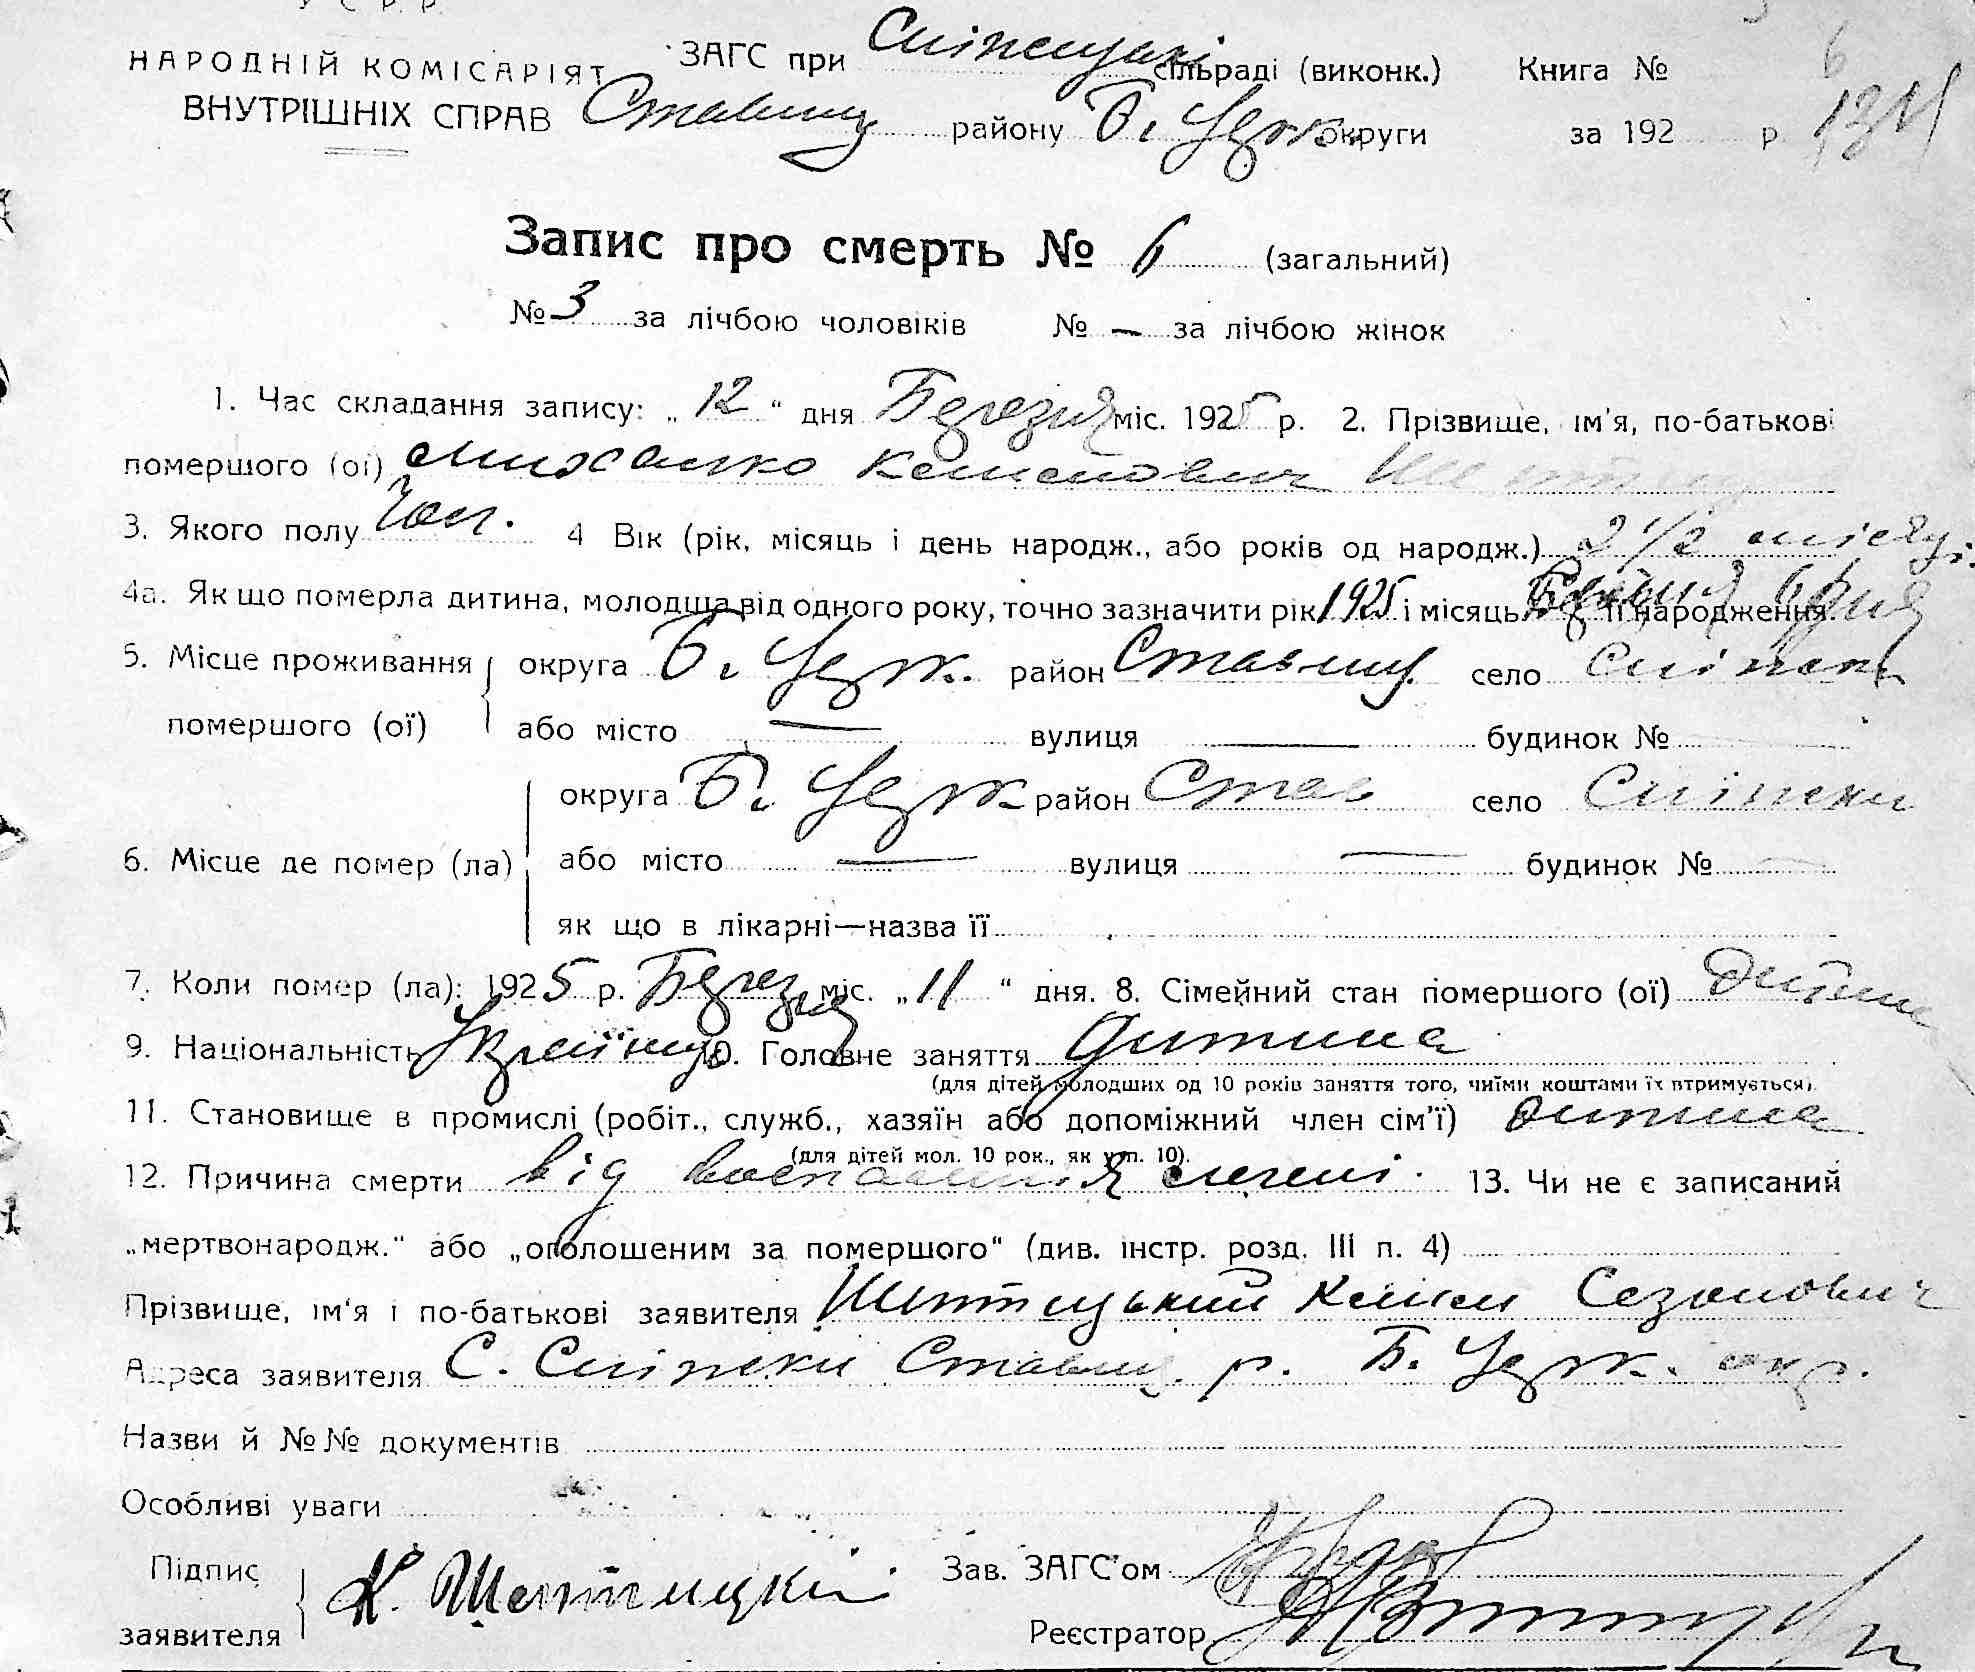 У С Р. Р.
НАРОДНІЙ КОМІСАРІЯТ ЗАГС при сільраді (виконк.) Книга № 6
ВНУТРІШНІХ СПРАВ Ставищ району Б. Церк. округи за 192 р
Запис про смерть № 6 (загальний)
№ 3 за лічбою чоловіків № — за лічбою жінок
1. Час складання запису: „ 12 “ дня Березня міс. 1925 р. 2. Прізвище, ім'я, по-батькові
помершого (ої) Михалко
3. Якого полу Чол. 4 Вік (рік, місяць і день народж., або років од народж.) 2 1/2 місяці.
4а. Як що померла дитина, молодша від одного року, точно зазначити рік 1925 і місяць її народження.
5. Місце проживання округа Б. Церк. район Ставищ. село Сніжки
помершого (ої) або місто — вулиця — будинок №
округа Б. Церк район Став село Сніжки
6. Місце де помер (ла) або місто — вулиця — будинок №
як що в лікарні—назва її
7. Коли помер (ла): 1925 р. Березня міс. „ 11 “ дня. 8. Сімейний стан помершого (ої) Дитина
9. Національність Українець 10. Головне заняття Дитина
(для дітей молодших од 10 років заняття того, чиїми коштами їх втримується).
11. Становище в промислі (робіт., служб., хазяїн або допоміжний член сім'ї) Дитина
(для дітей мол. 10 рок., як у п. 10).
12. Причина смерти від воспаленія легені. 13. Чи не є записаний
„мертвонародж.“ або „оголошеним за помершого“ (див. інстр. розд. III п. 4)
Прізвище, ім'я і по-батькові заявителя Шептицький
Адреса заявителя С. Сніжки Ставищ. р. Б. Церк. окр.
Назви й №№ документів
Особливі уваги
Підпис К. Шептицкій Зав. ЗАГС'ом
заявителя Реєстратор